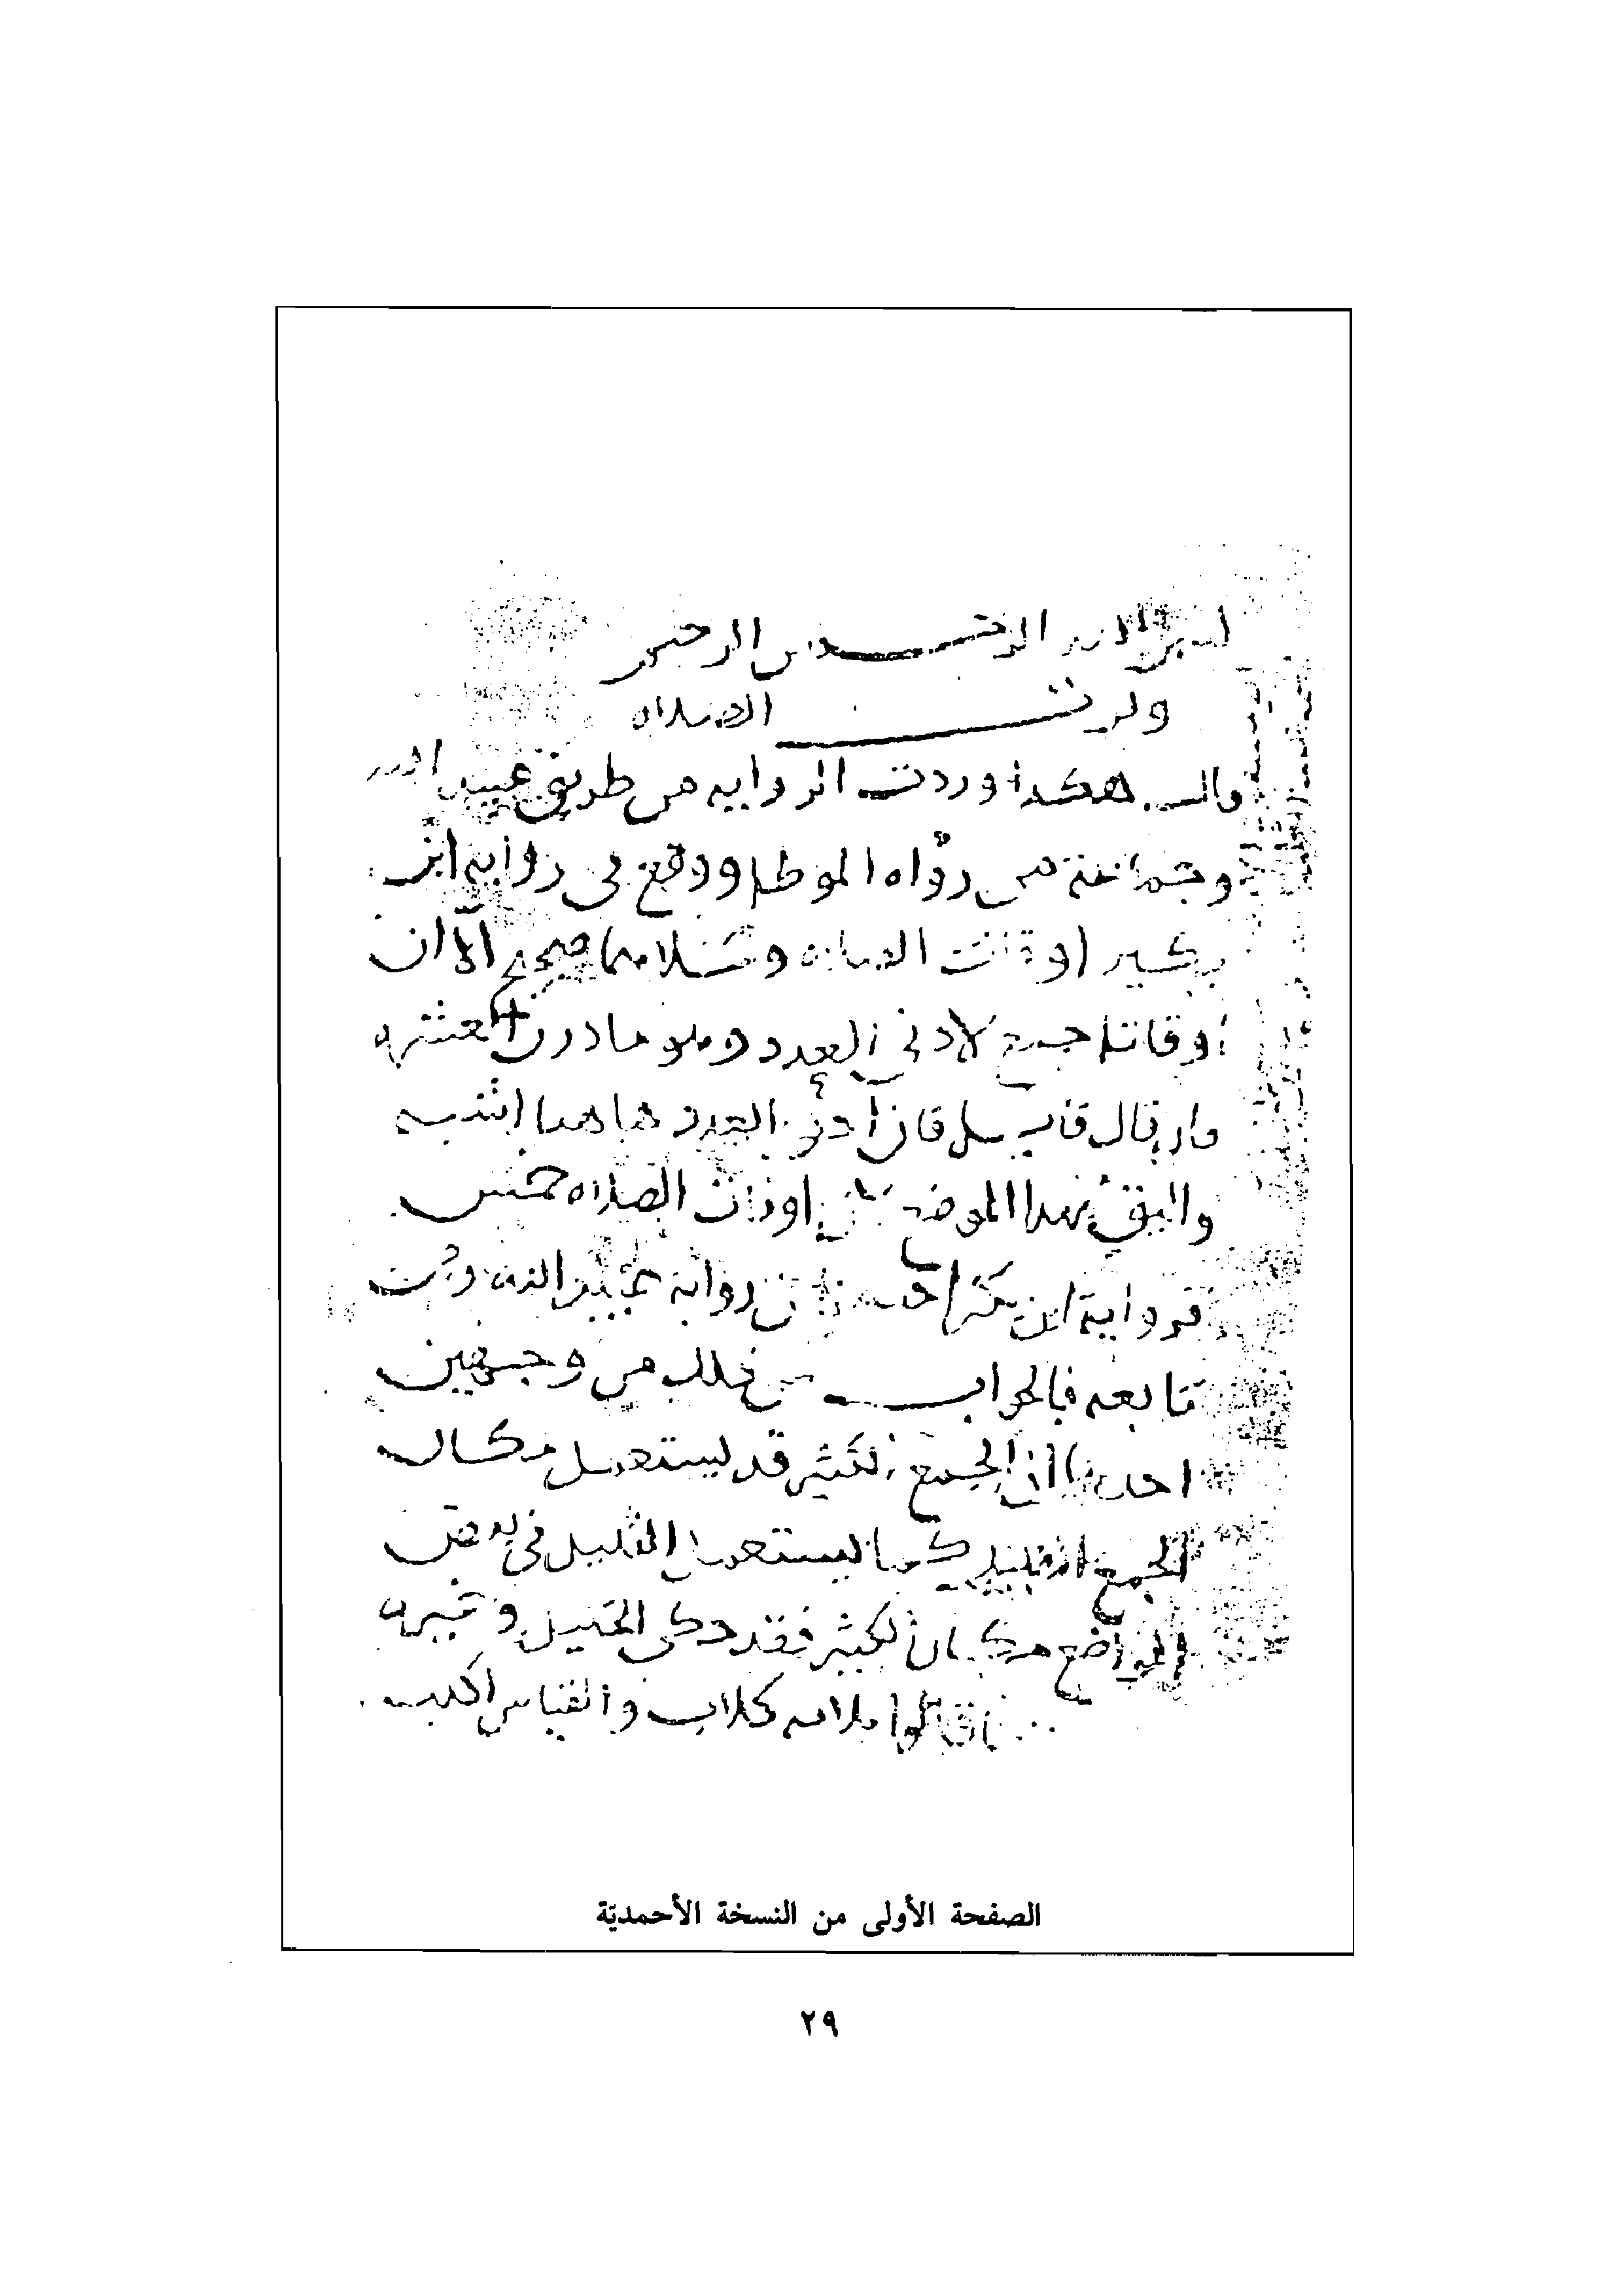 بسم الله الرحمن الرحيم
وقت الصلاه
قال هكذا وردت الروايه من طريق عبيد الله
وجماعة من رواه الموطا ووقع في روايه ابن
بكير اوقات الصلاه وكلاهما صحيح الا ان
اوقاتا جمع لادنى العدد وهو مادون العشره
فان قال قايل فان ادنى العدد هاهنا اشبه
واليق بهذا الموضع لان اوقات الصلاه خمس
فرواية ابن بكير احسن من رواية عبيد الله ومن
تابعه فالجواب عن ذلك من وجهين
احدهما ان الجمع الكثير قد يستعمل مكان
الجمع القليل كما يستعمل القليل في بعض
المواضع مكان الكثير فقد حكى الخليل وغيره
قالوا ثلاثه كلاب والقياس اكلب
الصفحة الأولى من النسخة الأحمديّة
٢٩